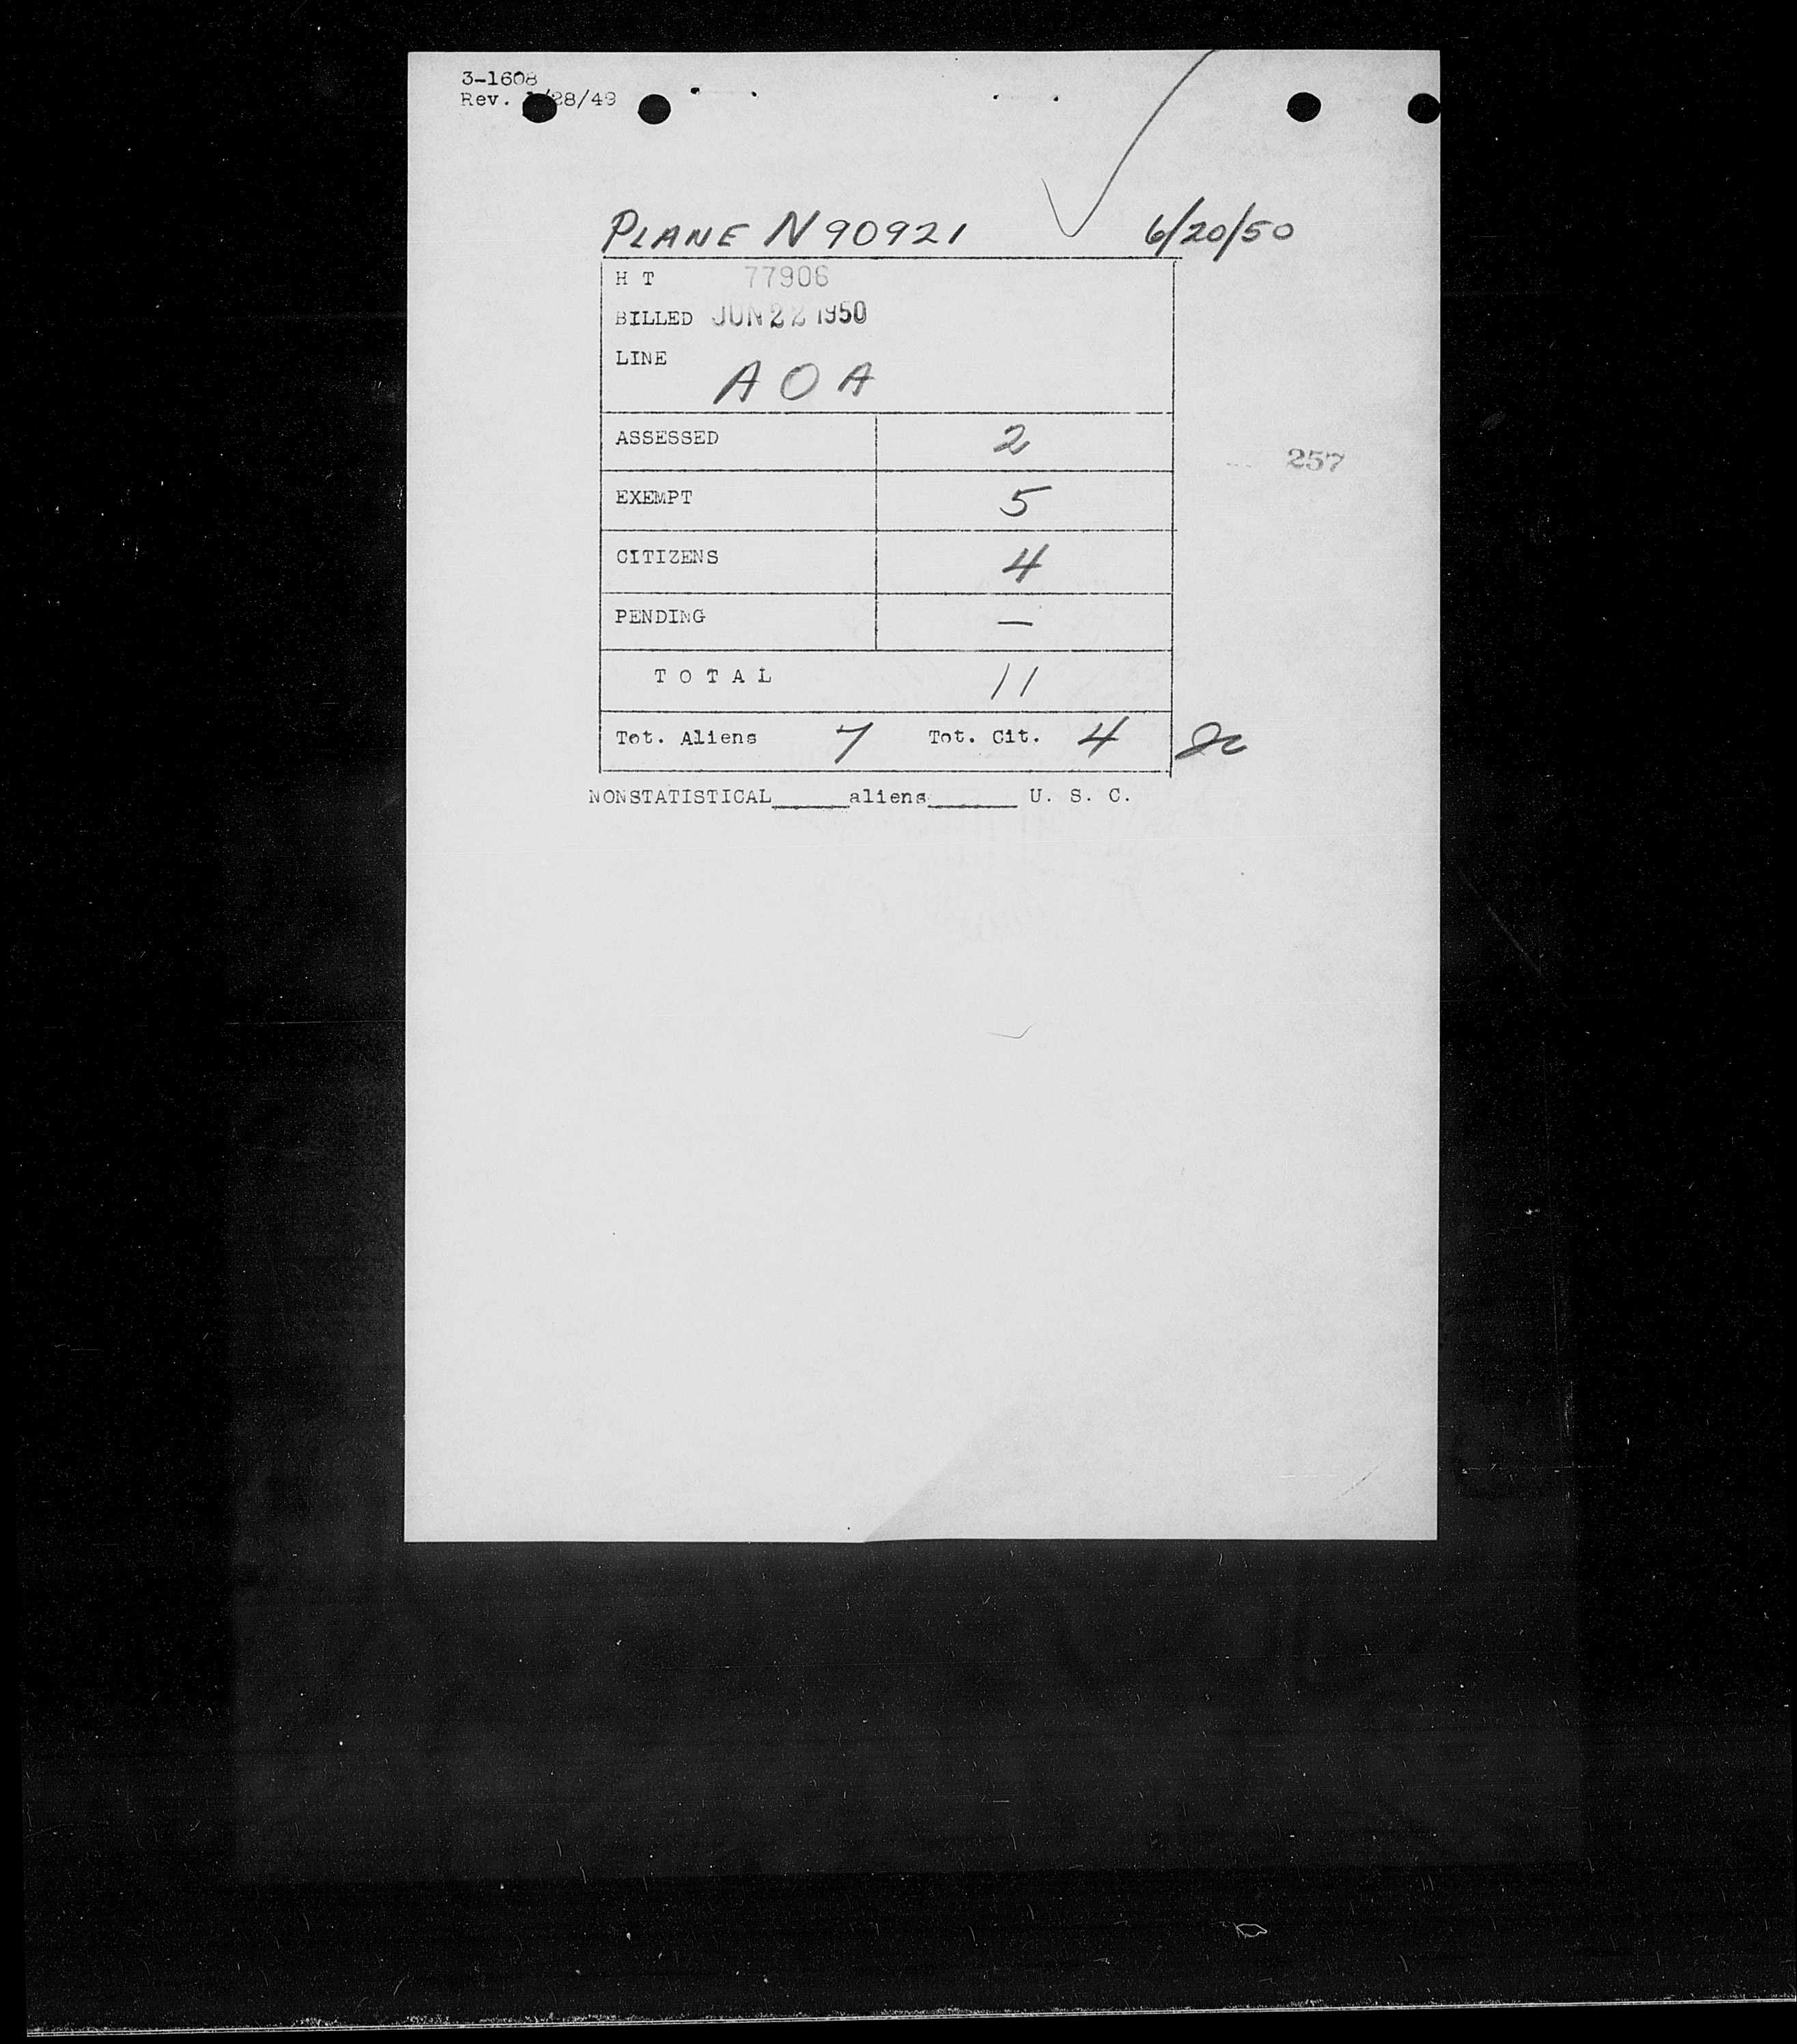 3-1608
Rev. /28/49
PLANE N90921 6/20/50
H T 77906
BILLED JUN 22 1950
LINE
A O A
ASSESSED 2
257
EXEMPT 5
CITIZENS 4
PENDING —
T O T A L 11
Tot. Aliens 7 Tot. Cit. 4
NONSTATISTICAL______aliens_______ U. S. C.